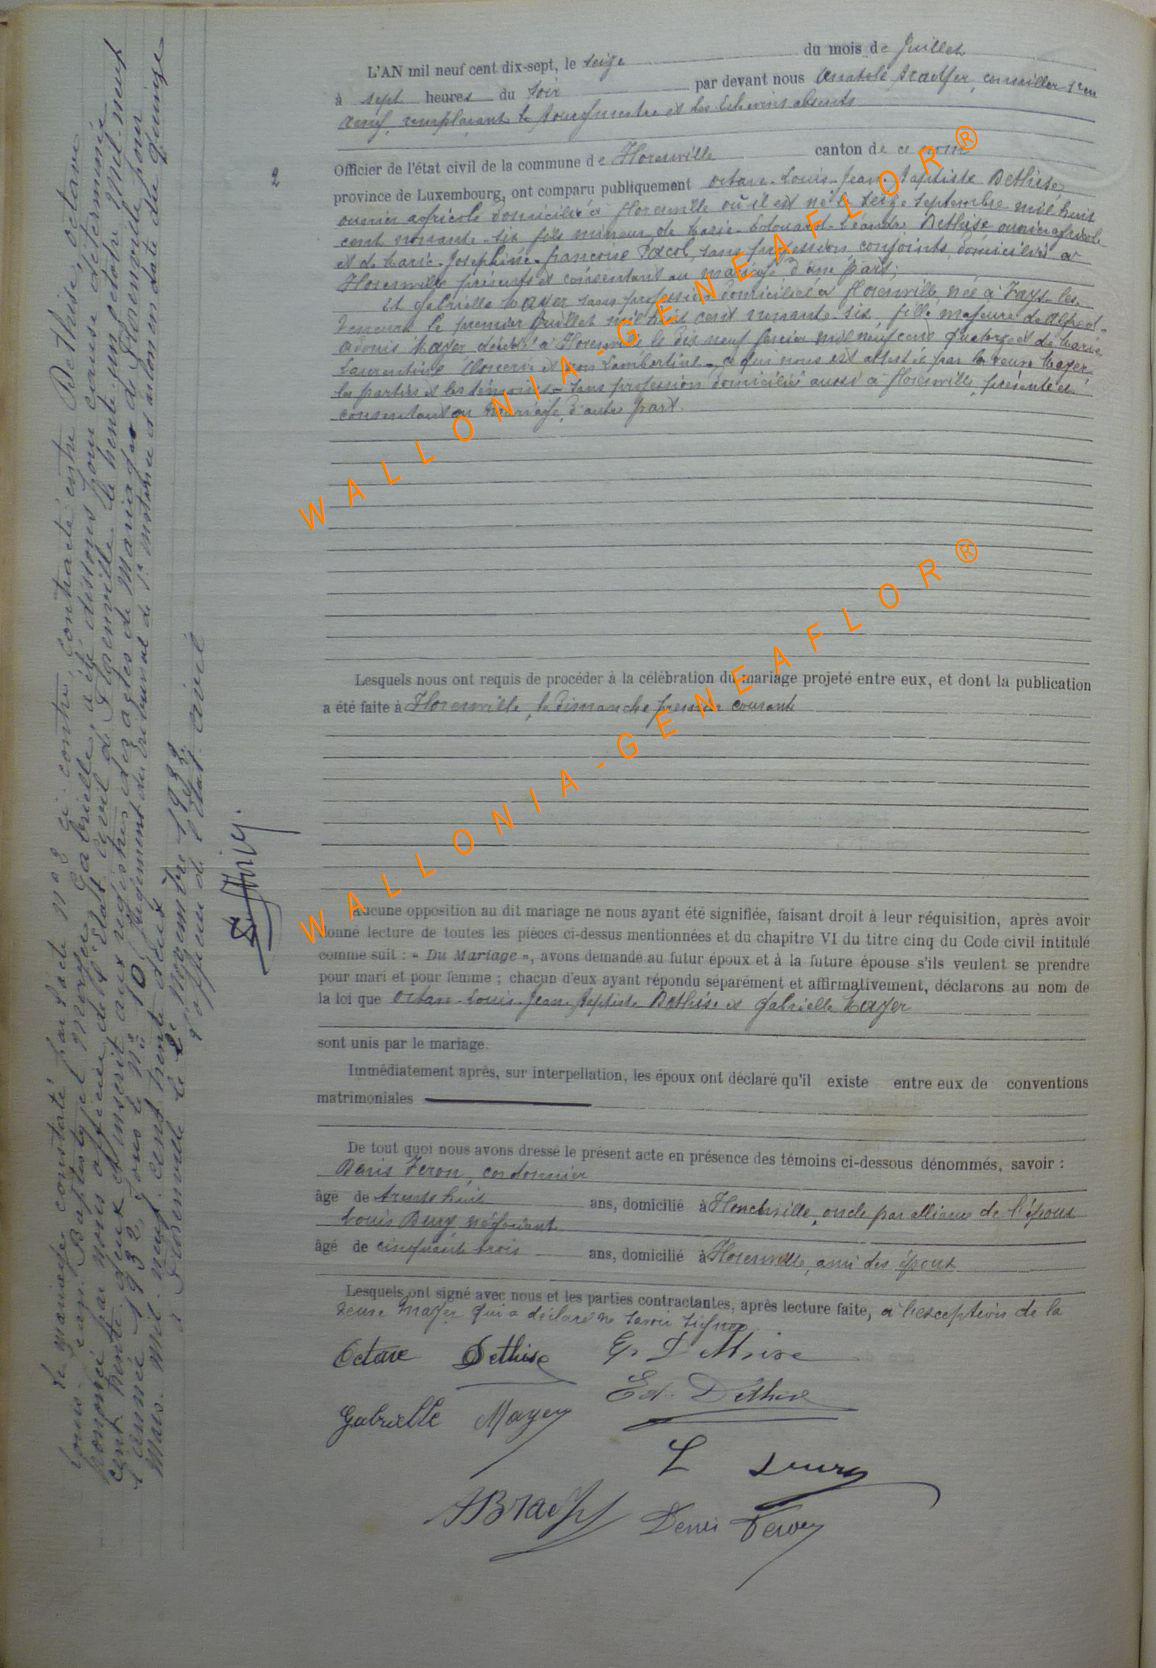 L'AN mil neuf cent dix-sept, le seize du mois de Juillet
à sept heures du soir par devant nous Anatole conseiller
remplaçant le bourgmestre et les Echevins absents
Officier de l'état civil de la commune de Florenville canton de ce nom
2
province de Luxembourg, ont comparu publiquement octave-Louis-Jean-Baptiste Dethise,
ouvrier agricole domicilié à Florenville où il est né le seize septembre mil huit
cent nonante-six fils mineur de Marie-Edouard- Dethise ouvrier agricole
et de Marie-Josephine-françoise sans profession, conjoints, domiciliés à
Florenville présents et consentant au mariage d'une part;
Et Gabrielle Mayer sans profession domiciliée à Florenville, née à
le premier Juillet mil huit cent nonante-six, fille majeure de
Adonis Mayer décédé à Florenville le dix neuf février mil neuf cent quatorze et de Marie
Laurentine Lambertine, ce qui nous est attesté par la veuve Mayer
les parties et les témoins, sans profession domiciliée aussi à Florenville, présente et
consentant au mariage, d'autre part.
Lesquels nous ont requis de procéder à la célébration du mariage projeté entre eux, et dont la publication
a été faite à Florenville, le dimanche premier courant
Aucune opposition au dit mariage ne nous ayant été signifiée, faisant droit à leur réquisition, après avoir
donné lecture de toutes les pièces ci-dessus mentionnées et du chapitre VI du titre cinq du Code civil intitulé
comme suit : « Du Mariage », avons demandé au futur époux et à la future épouse s'ils veulent se prendre
pour mari et pour femme ; chacun d'eux ayant répondu séparément et affirmativement, déclarons au nom de
la loi que Octave-Louis-Jean-Baptiste Dethise et Gabrielle Mayer
sont unis par le mariage.
Immédiatement après, sur interpellation, les époux ont déclaré qu'il existe entre eux de conventions
matrimoniales
De tout quoi nous avons dressé le présent acte en présence des témoins ci-dessous dénommés, savoir :
Denis cordonnier
âgé de trente huit ans, domicilié à oncle par alliance de l'époux
Louis négociant
âgé de cinquante trois ans, domicilié à Florenville, ami des époux
Lesquels ont signé avec nous et les parties contractantes, après lecture faite, à l'exception de la
veuve Mayer qui a déclaré ne savoir signer
Octave Dethise
Ed. Dethise
Gabrielle Mayer
L
Denis
Le mariage constaté par l'acte n° 2 ci-contre, contracté entre Dethise, octave,
Louis-Jean-Baptiste et Mayer, Gabrielle, a été dissous pour cause déterminée
prononcé par nous officier de l'Etat civil de Florenville le trente-un octobre mil neuf
cent trente deux et inscrit aux registres des actes de Mariages de Florenville pour
l'année 1932 sous le N° 10, Jugement du tribunal de 1e instance d'Arlon en date du quinze
Mars mil neuf cent trente deux
à Florenville le 2 Novembre 1932.
L'officier de l'état civil
WALLONIA-GENEAFLOR®
WALLONIA-GENEAFLOR®